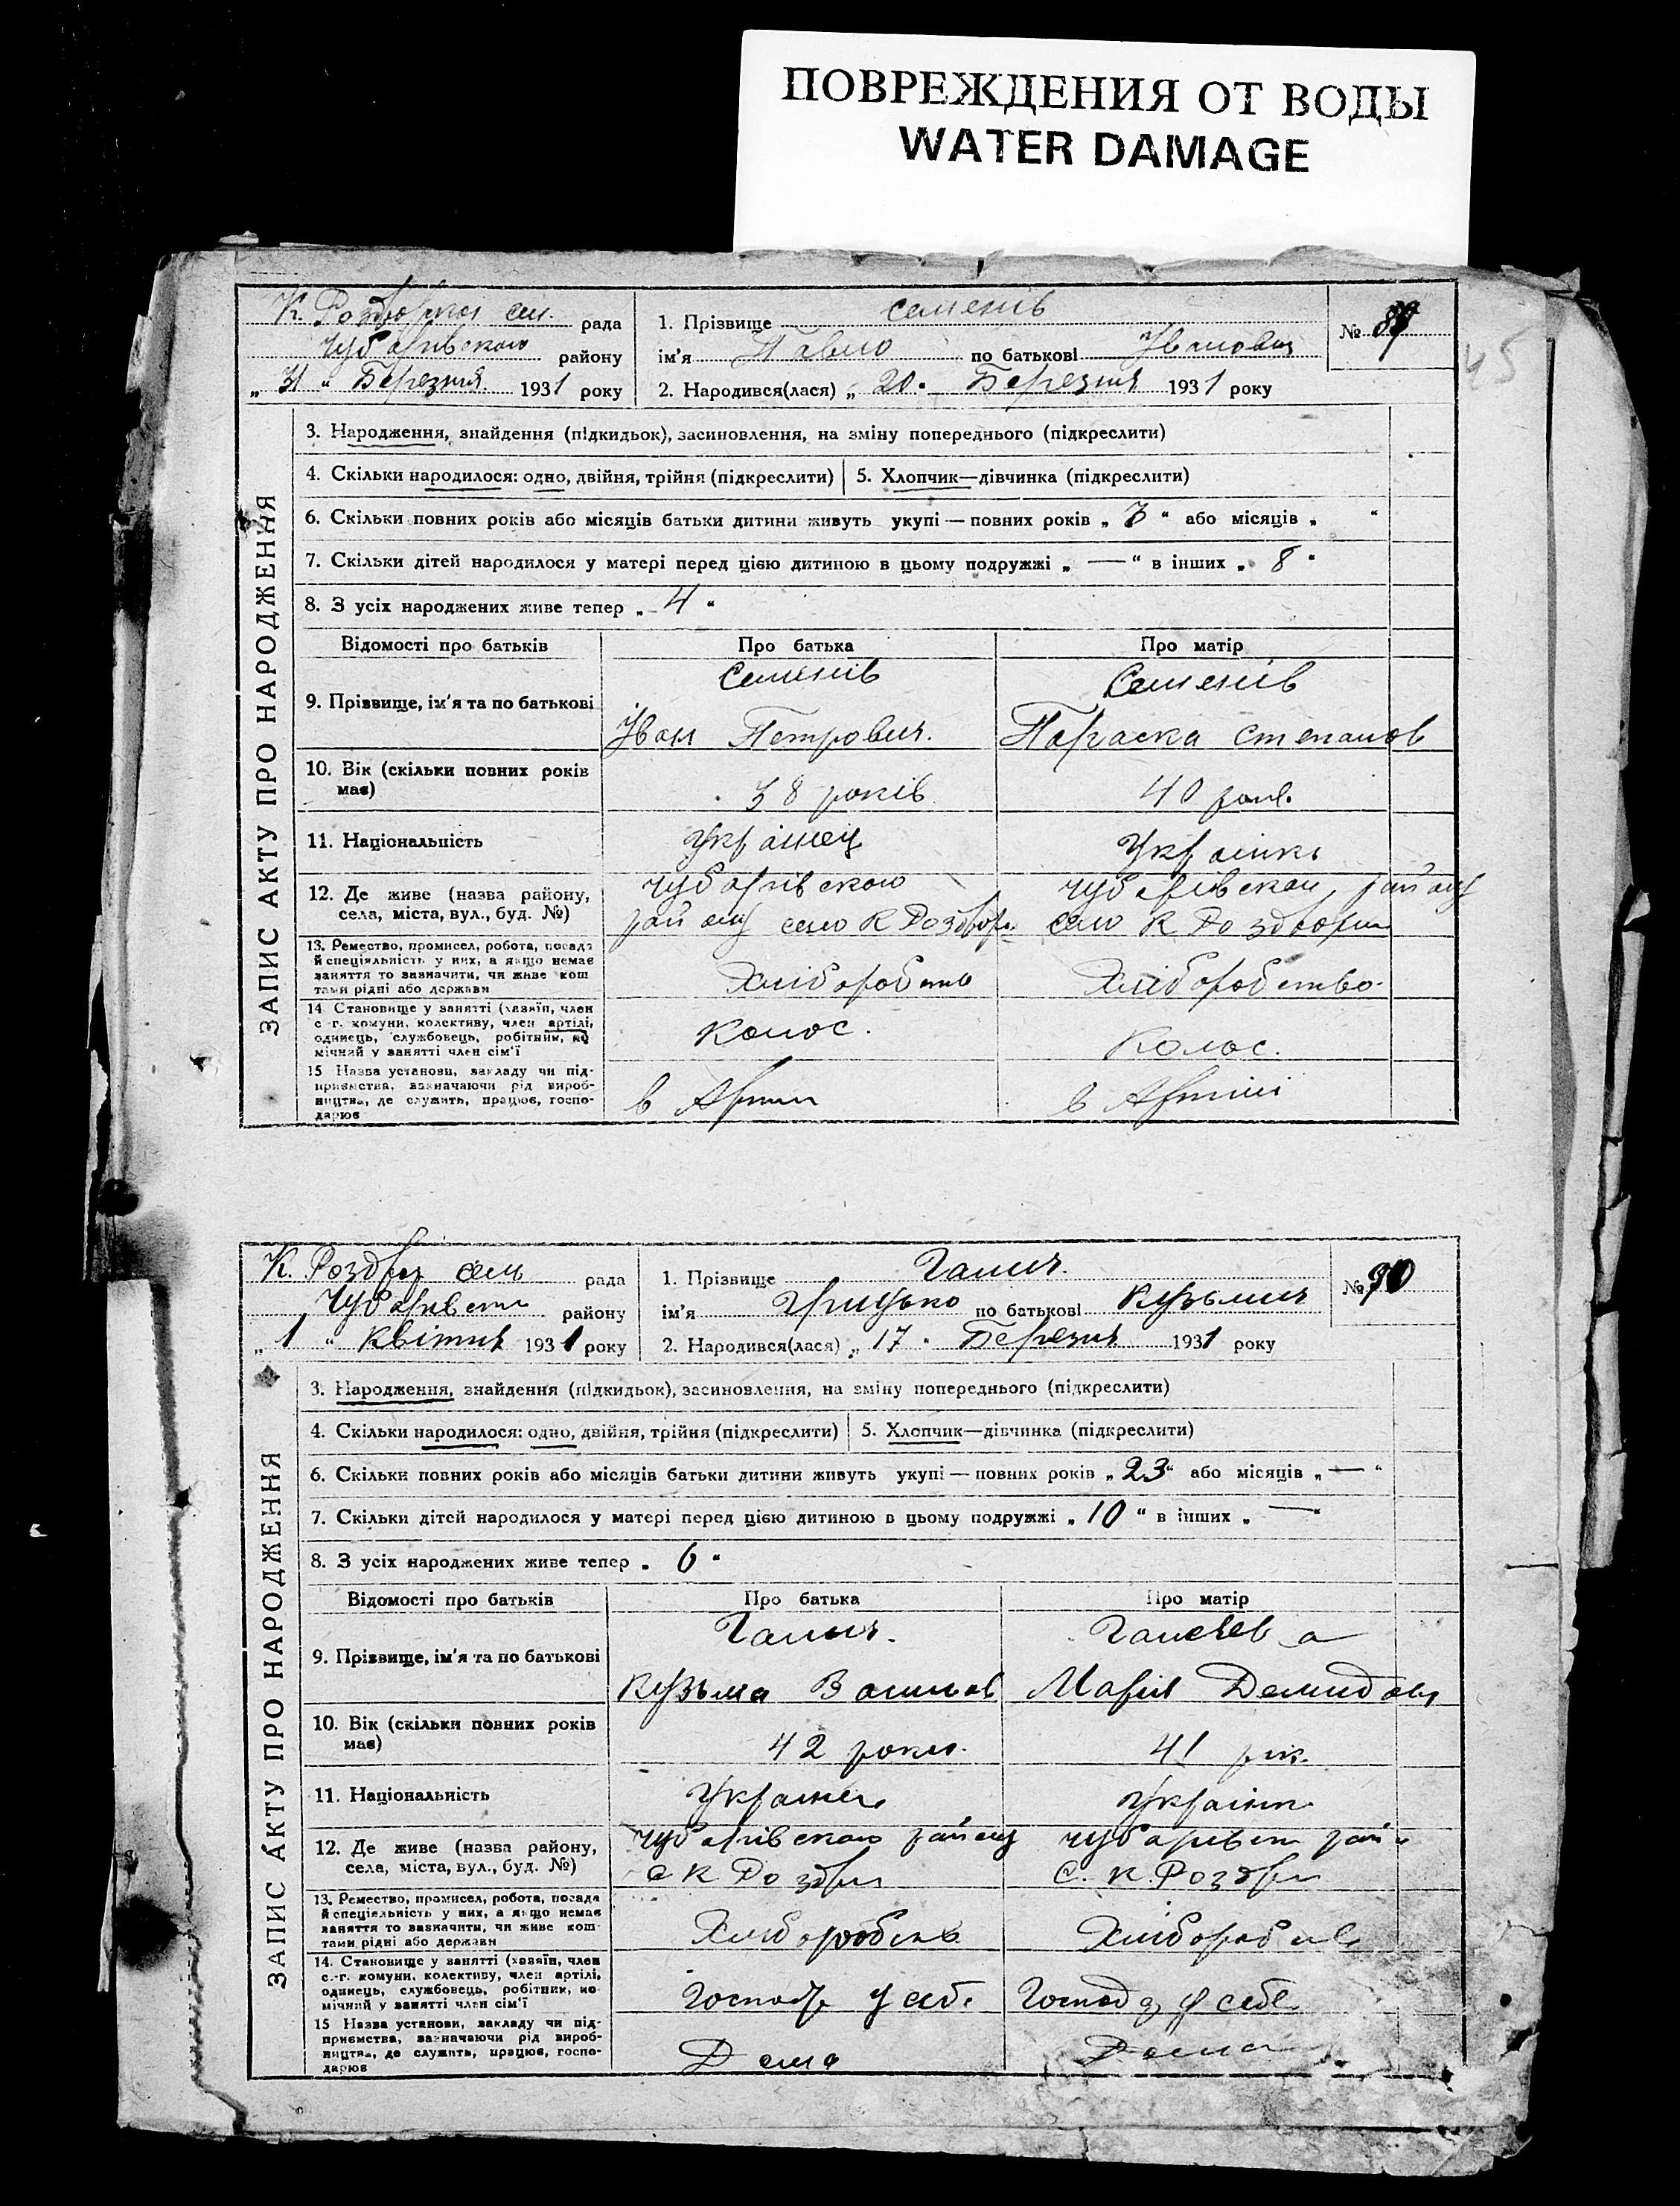 ПОВРЕЖДЕНИЯ ОТ ВОДЫ
WATER DAMAGE
К. сел. рада
Чубарівського району
„ 31 “ Березня 1931 року
1. Прізвище Семенів
ім'я Павло по батькові Іванович
2. Народився(лася) „ 20 “ Березня 1931 року
№ 89
45
ЗАПИС АКТУ ПРО НАРОДЖЕННЯ
3. Народження, знайдення (підкидьок), засиновлення, на зміну попереднього (підкреслити)
4. Скільки народилося: одно, двійня, трійня (підкреслити) 5. Хлопчик—дівчинка (підкреслити)
6. Скільки повних років або місяців батьки дитини живуть укупі — повних років „ “ або місяців „ “
7. Скільки дітей народилося у матері перед цією дитиною в цьому подружжі „ — “ в інших „ 8 “
8. З усіх народжених живе тепер „ 4 “
Відомості про батьків Про батька Про матір
9. Прізвище, ім'я та по батькові
Семенів Семенів
Іван Петрович. Параска Степанов
10. Вік (скільки повних років має)
38 років 40 років
11. Національність
Українец Українка
12. Де живе (назва району, села, міста, вул., буд. №)
Чубарівського Чубарівского району
району село К Роздори село К Роздори
13. Ремество, промисел, робота, посада й спеціяльність у них, а якщо немає заняття то зазначити, чи живе коштами рідні або держави
Хліборобство Хліборобство.
14. Становище у занятті (хазяїн, член с.-г. комуни, колективу, член артілі, одинець, службовець, робітник, помічний у занятті член сім'ї
Колос. Колос.
15 Назва установи, закладу чи підприємства, зазначаючи рід виробництва, де служить, працює, господарює
в Артіли в Артілі
К. Роздор сель рада
району
„ 1 “ Квітня 1931 року
1. Прізвище Галич.
ім'я Грицько по батькові Кузьмич
2. Народився(лася) „ 17 “ Березня 1931 року
№ 90
ЗАПИС АКТУ ПРО НАРОДЖЕННЯ
3. Народження, знайдення (підкидьок), засиновлення, на зміну попереднього (підкреслити)
4. Скільки народилося: одно, двійня, трійня (підкреслити) 5. Хлопчик—дівчинка (підкреслити)
6. Скільки повних років або місяців батьки дитини живуть укупі — повних років „ 23 “ або місяців „ — “
7. Скільки дітей народилося у матері перед цією дитиною в цьому подружжі „ 10 “ в інших „ — “
8. З усіх народжених живе тепер „ 6 “
Відомості про батьків Про батька Про матір
9. Прізвище, ім'я та по батькові
Галич.
Кузьма Марія Демидов
10. Вік (скільки повних років має)
42 роки. 41 рік.
11. Національність
Українец Українк
12. Де живе (назва району, села, міста, вул., буд. №)
Чубарівского району
с К Роздори С. К. Роздори
13. Ремество, промисел, робота, посада й спеціяльність у них, а якщо немає заняття то зазначити, чи живе коштами рідні або держави
14. Становище у занятті (хазяїн, член с.-г. комуни, колективу, член артілі, одинець, службовець, робітник, помічний у занятті член сім'ї
у себе у себе
15 Назва установи, закладу чи підприємства, зазначаючи рід виробництва, де служить, працює, господарює
Дома Дома